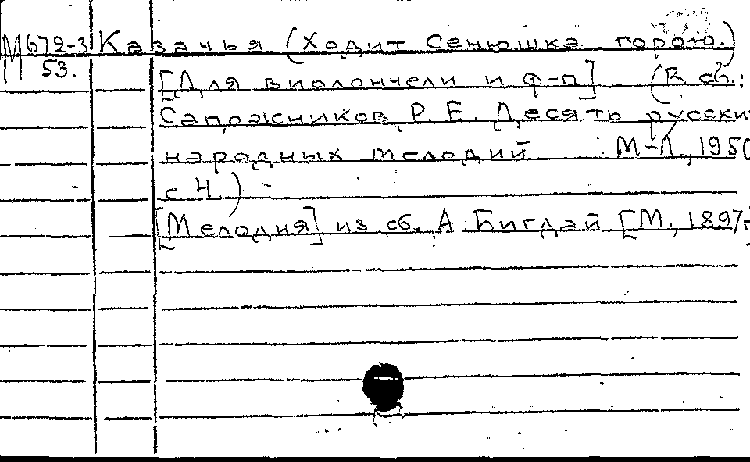 М 672-3 Казачья (Ходит Сенюшка горою.)
53. [Для виолончели и ф-п] (В сб.:
Сапожников, Р. Е. Десять русски
народных мелодий М-Л., 1950
с 4.)
[Мелодия] из сб. А. Бигдэй [М, 1897г